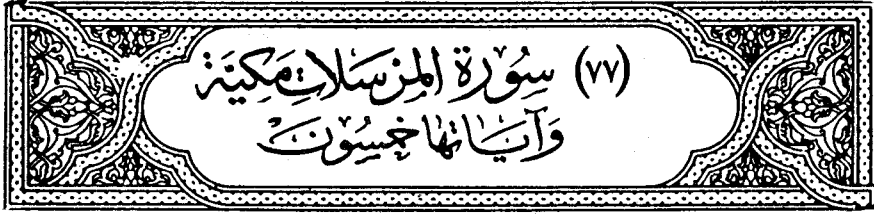 (٧٧) سُورَة المرْسَلاتِ مَكِيَّة
وَآيَاتهَا خَمْسُونَ